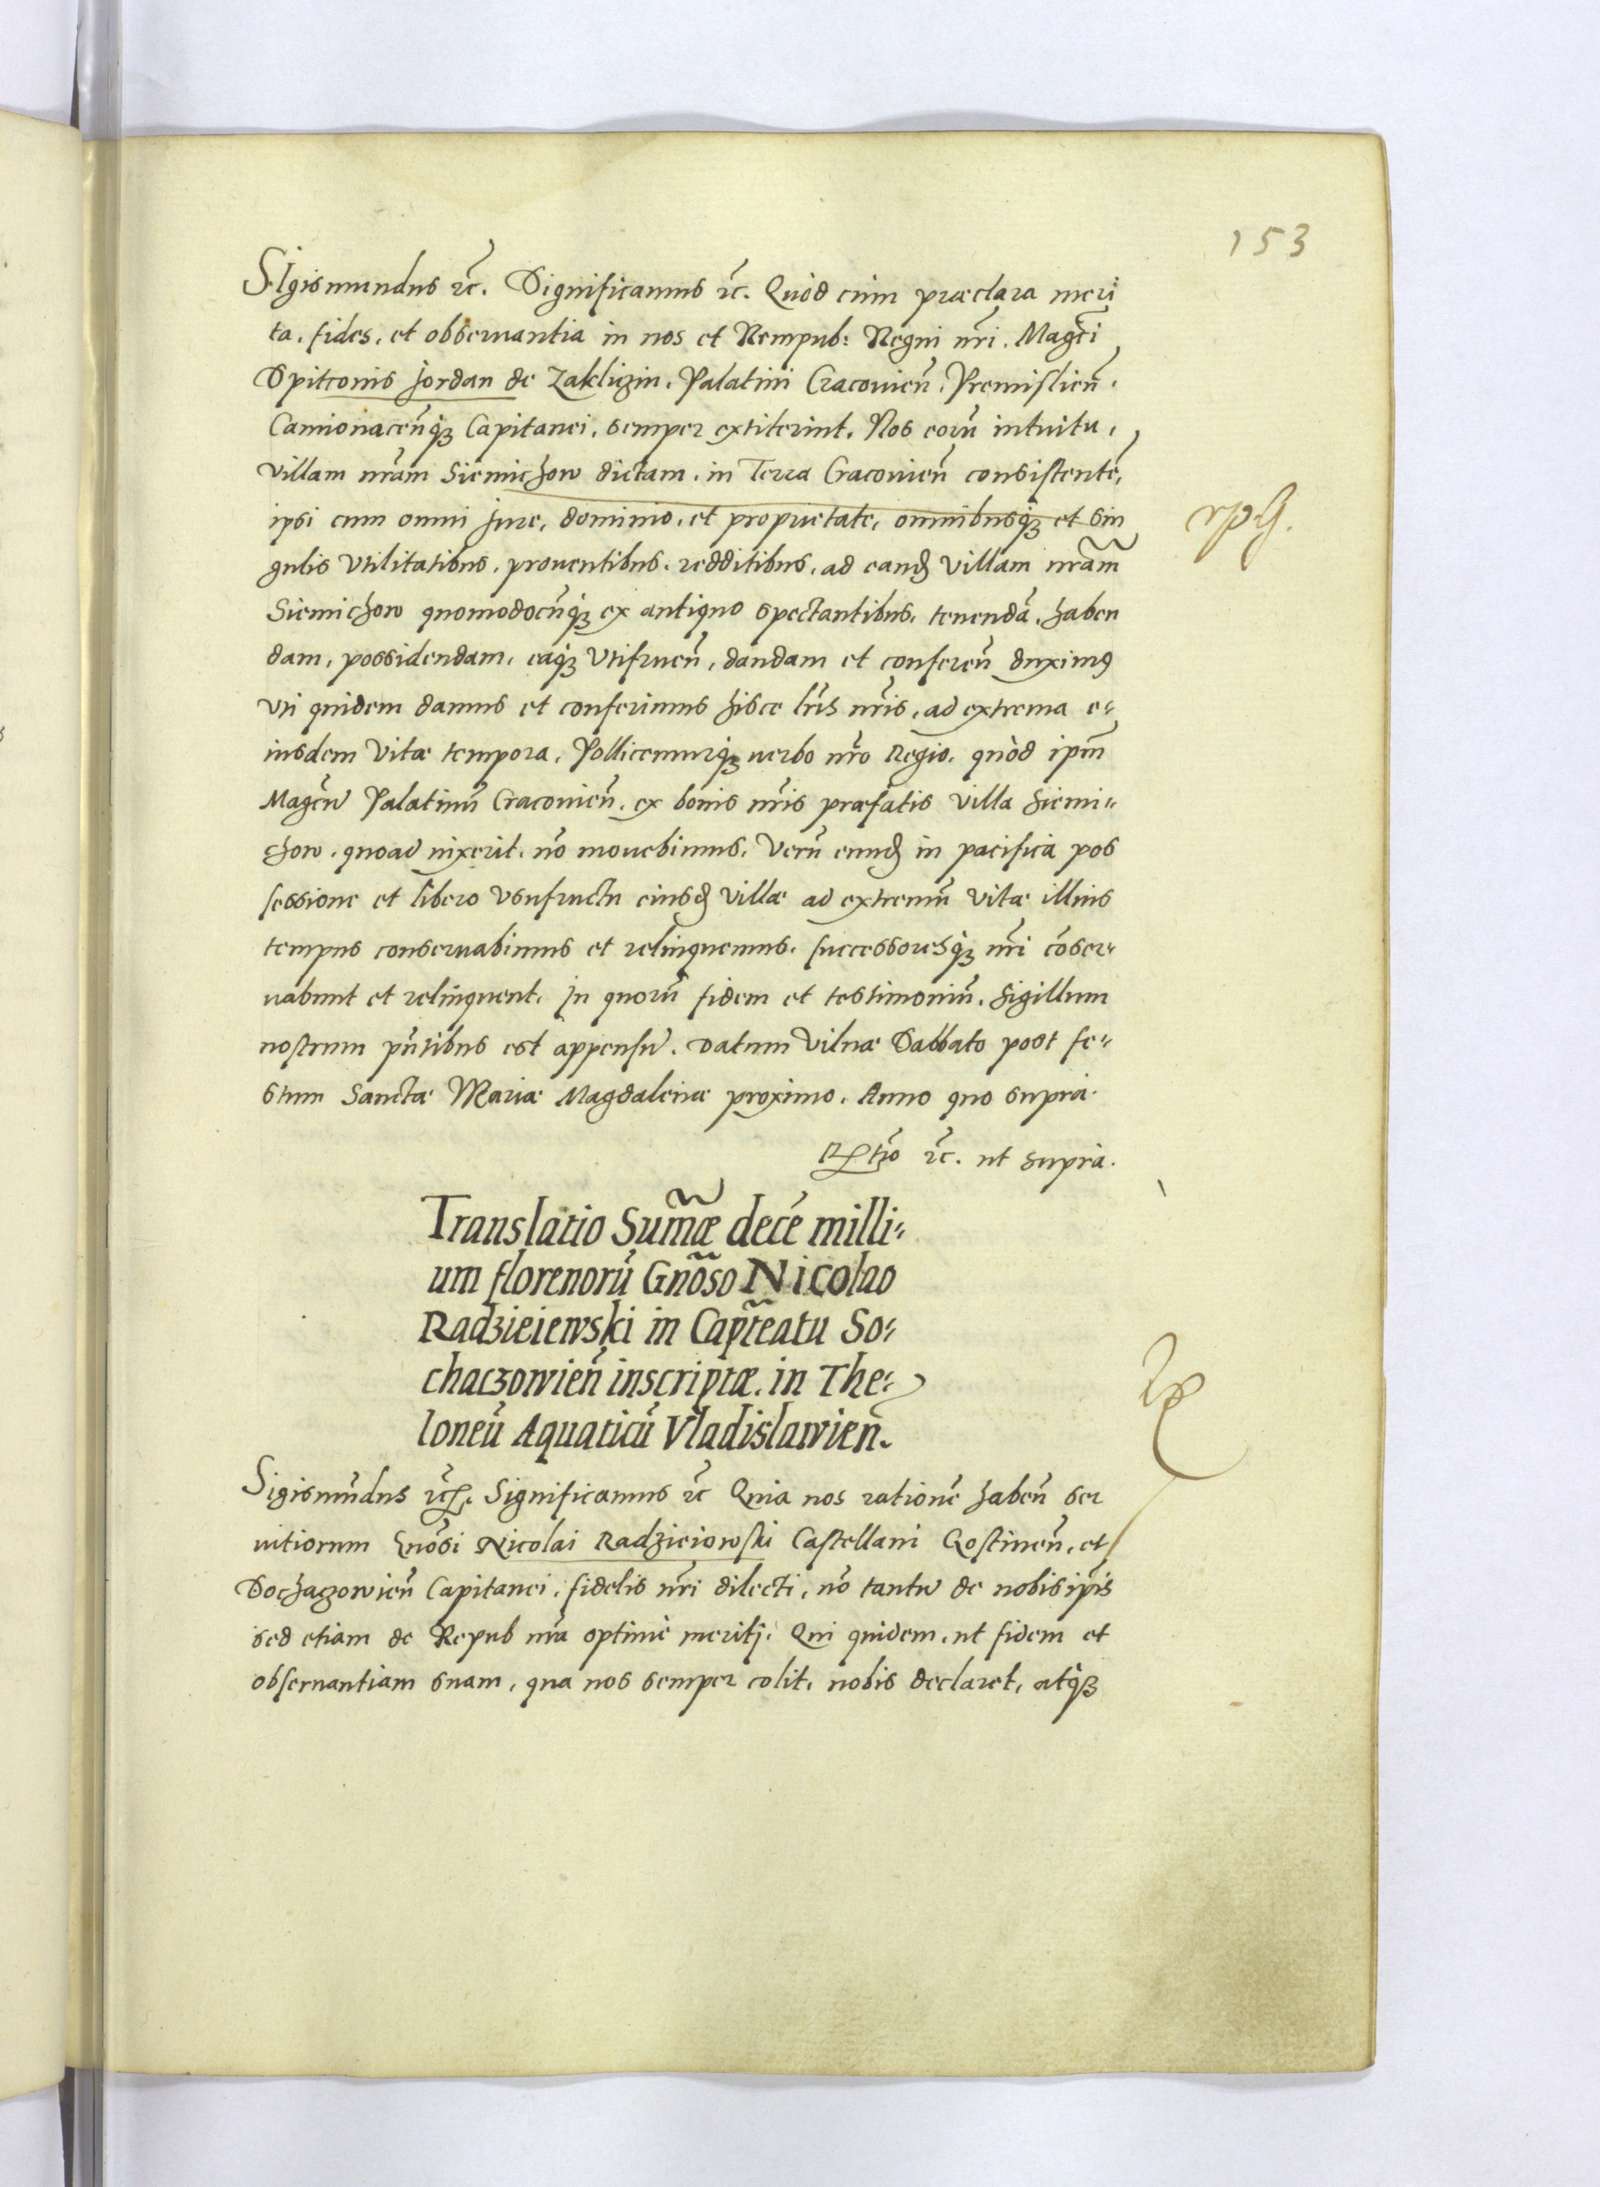 153
SIgismundus rc̃. Significamus rc̃. Quòd cum præclara meri
ta, fides, et obseruantia in nos et Rempub: Regni nr̃i, Magc̃i
Spitconis Jordan de Zakliczin, Palatini Cracouien̄, Premislien̄,
Camionacen̄q́ꝫ Capitanei, semper extiterint, Nos eorū intuitu,
villam nr̃am Siemichow dictam, in Terra Cracouien̄ consistentē,
ipsi cum omni Jure, dominio, et proprietate, omnibusq́ꝫ et sin
gulis vtilitatibus, prouentibus, redditibus, ad eand̄ villam nr̃am
Siemichow quomodocūq́ꝫ ex antiquo spectantibus, tenendā, haben
dam, possidendam, eaq́ꝫ vtifruen̄, dandam et conferen̄ duximꝰ
vti quidem damus et conferimus hisce lr̃is nr̃is, ad extrema e-
iusdem vitæ tempora, Pollicemurq́ꝫ uerbo nr̃o Regio, quòd ipm̄
Magcū Palatinū Cracouien̄, ex bonis nr̃is præfatis villa Siemi-
chow, quoad uixerit, nō mouebimus, Verū eund̄ in pacifica pos
sessione et libero vsufructu eiusd̄ villæ ad extremū vitæ illius
tempus conseruabimus et relinquemus, successoresq́ꝫ nr̃i cōser-
uabunt et relinquent. In quorū fidem et testimoniū, Sigillum
nostrum pn̄tibus est appensū. Datum Vilnæ Sabbato post fe-
stum Sanctæ Mariæ Magdalenæ proximo, Anno quo suprà.
rc̃. ut suprà.
Translatio Sum̃æ decē milli-
um florenorū Gnõso Nicolao
Radzieiewski in Capt̃eatu So-
chaczowien̄ inscriptæ, in The-
loneū Aquaticū Vladislawien̄.
Sigismūdus rc̃. Significamus rc̃ Quia nos rationē haben̄ ser
uitiorum Gnõsi Nicolai Radzieiowski Castellani Gostinen̄, et
Sochaczowien̄ Capitanei, fidelis nr̃i dilecti, nō tantū de nobis ip̄is
sed etiam de Repub nr̃a optimè meritj. Qui quidem, ut fidem et
obseruantiam suam, qua nos semper colit, nobis declaret, atq́ꝫ